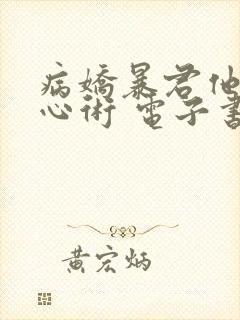 病嬌暴君他
心術 電子書
黃宏炳